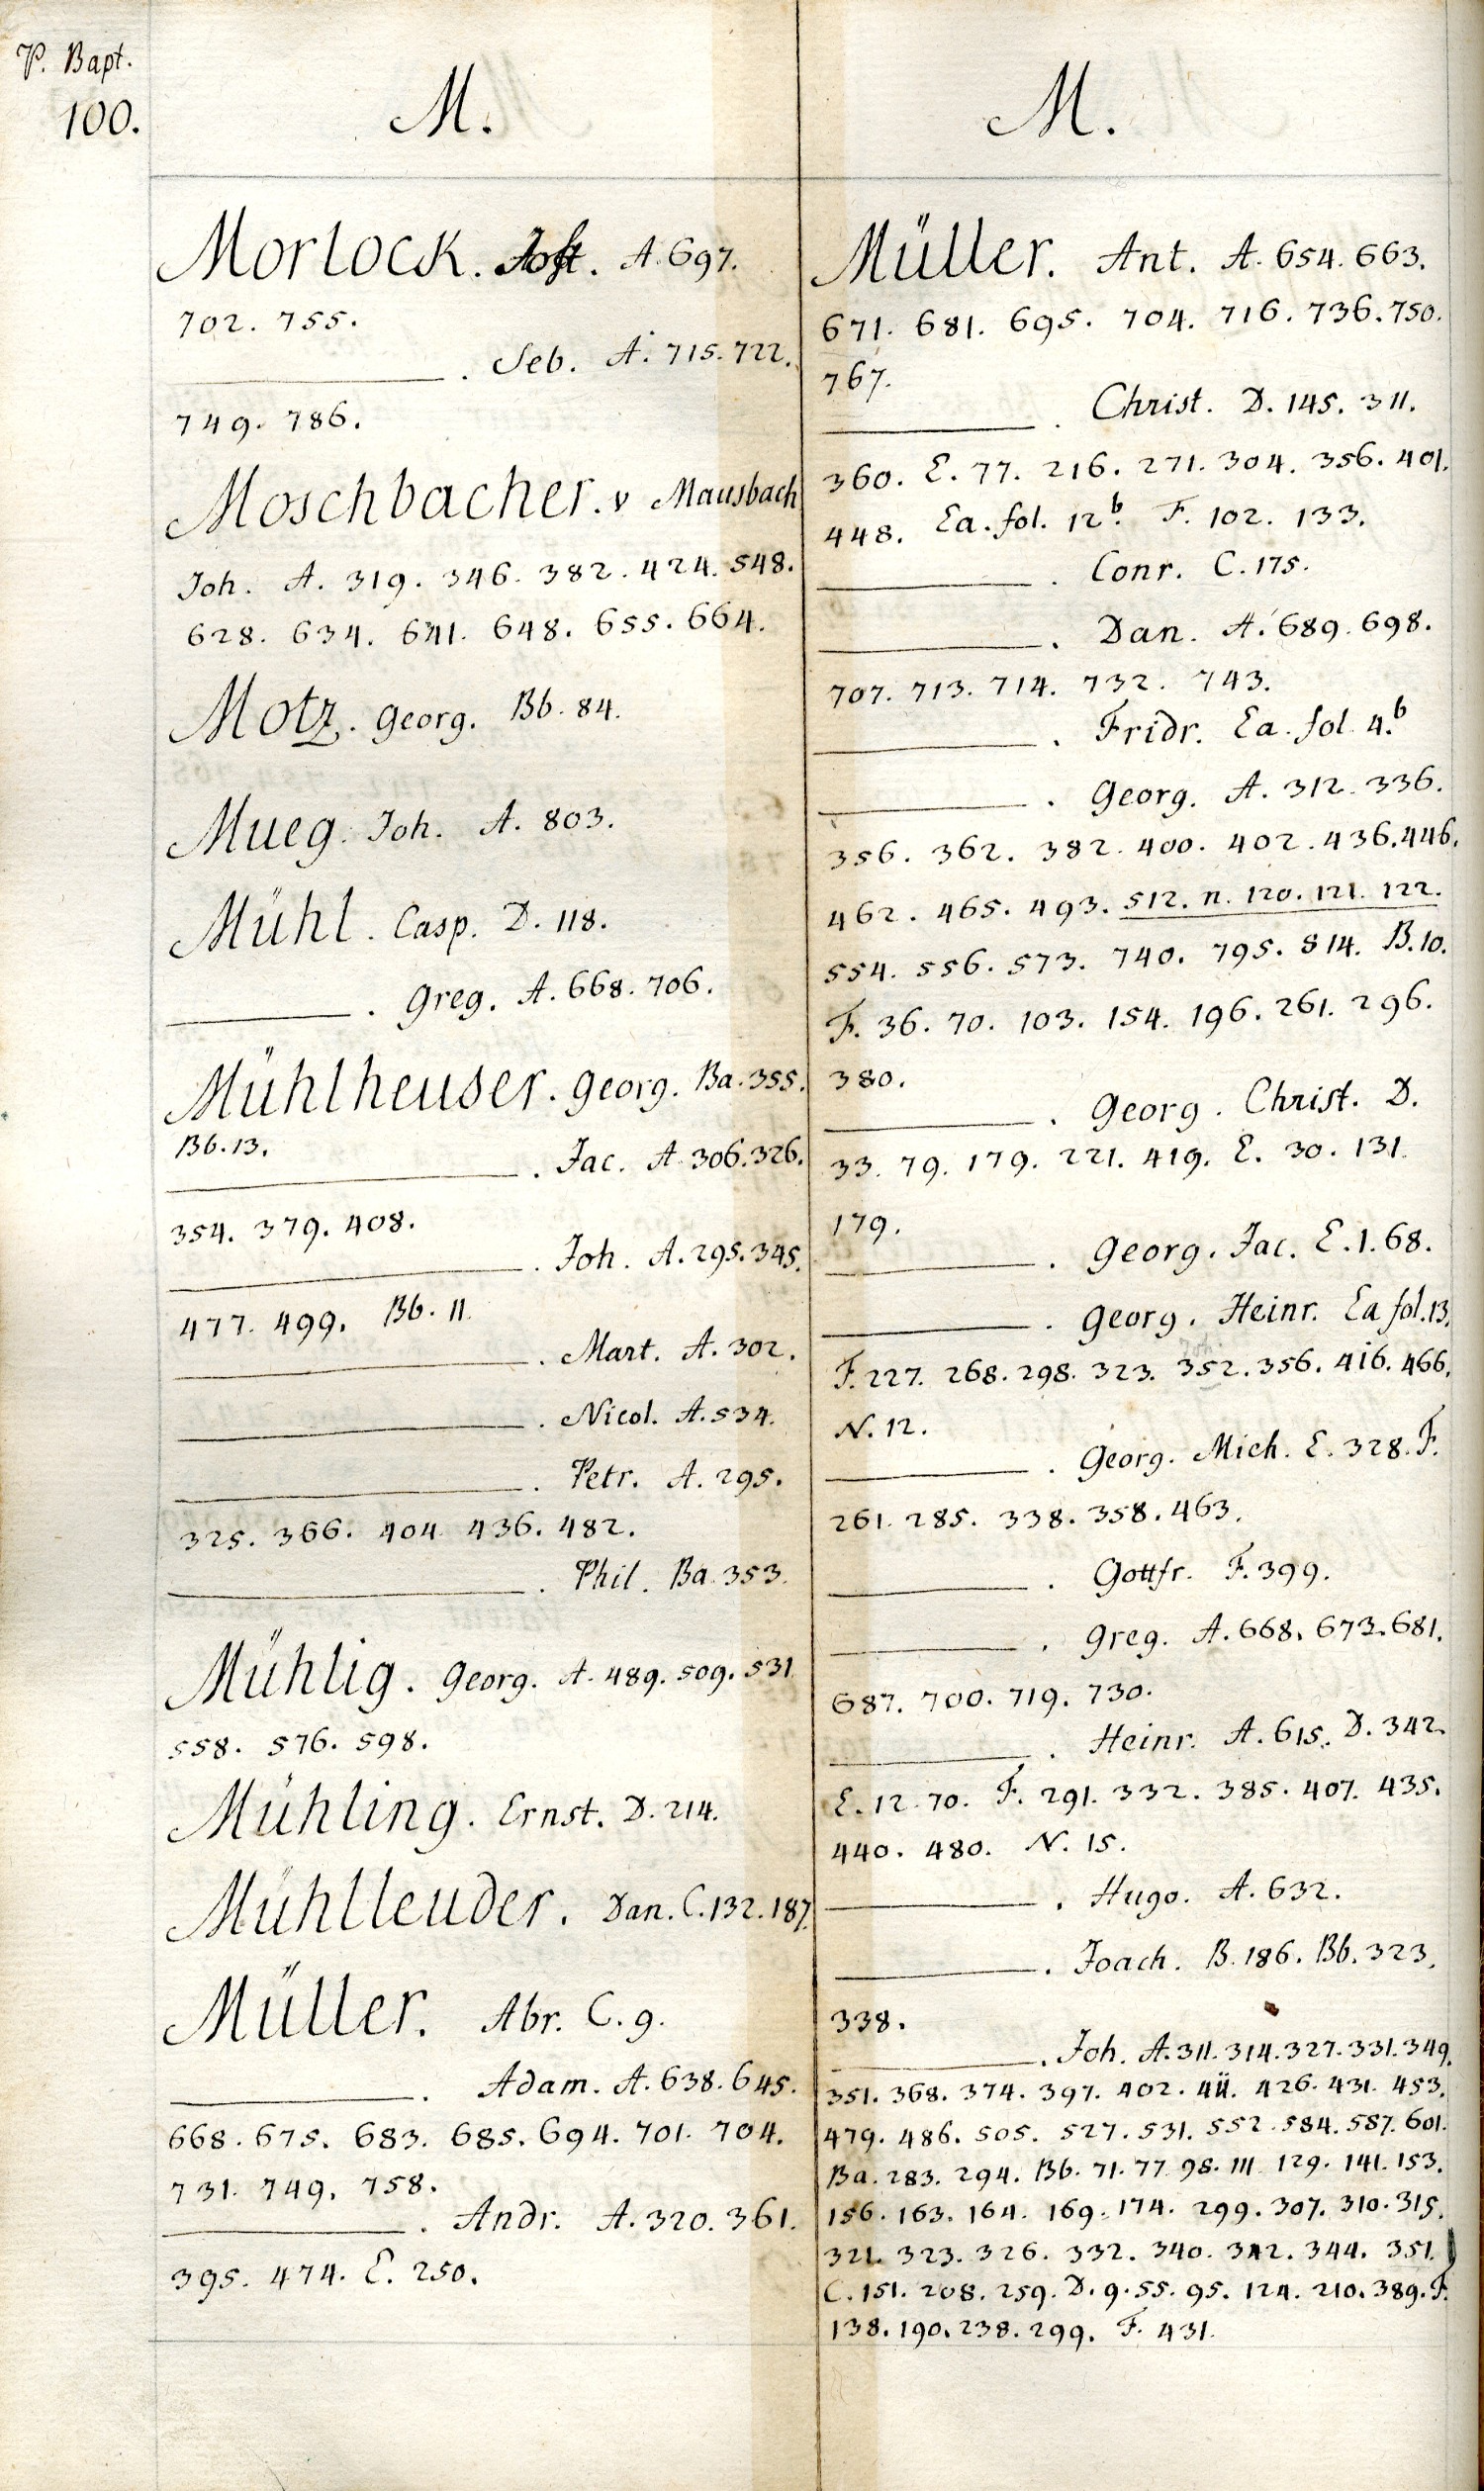 P. Bapt.
100.
M.
Morlock. Jost. A. 697.
702. 755.
———. Seb. A. 715. 722.
749. 786.
Moschbacher. v Mausbach
Joh. A. 319. 346. 382. 424. 548.
628. 634. 641. 648. 655. 664.
Motz. Georg. Bb. 84.
Mueg. Joh. A. 803.
Mühl. Casp. D. 118.
———. Greg. A. 668. 706.
Mühlheuser. Georg. Ba. 355.
Bb. 13.
———. Jac. A. 306. 326.
354. 379. 408.
———. Joh. A. 295. 345.
477. 499. Bb. 11.
———. Mart. A. 302.
———. Nicol. A. 534.
———. Petr. A. 295.
325. 366. 404. 436. 482.
———. Phil. Ba. 353.
Mühlig. Georg. A. 489. 509. 531
558. 576. 598.
Mühling. Ernst. D. 214.
Mühlleuder. Dan. C. 132. 187.
Müller. Abr. C. 9.
———. Adam. A. 638. 645.
668. 675. 683. 685. 694. 701. 704.
731. 749. 758.
———. Andr. A. 320. 361.
395. 474. E. 250.
M.
Müller. Ant. A. 654. 663.
671. 681. 695. 704. 716. 736. 750.
767.
———. Christ. D. 145. 311.
360. E. 77. 216. 271. 304. 356. 401.
448. Ea. fol. 12b. F. 102. 133.
———. Conr. C. 175.
———. Dan. A. 689. 698.
707. 713. 714. 732. 743.
———. Fridr. Ea. fol. 4.b
———. Georg. A. 312. 336.
356. 362. 382. 400. 402. 436. 446.
462. 465. 493. 512. n. 120. 121. 122.
554. 556. 573. 740. 795. 814. B. 10.
F. 36. 70. 103. 154. 196. 261. 296.
380.
———. Georg. Christ. D.
33. 79. 179. 221. 419. E. 30. 131.
179.
———. Georg. Jac. E. 1. 68.
———. Georg. Heinr. Ea fol. 13.
F. 227. 268. 298. 323. 352. 356. 416. 466.
N. 12.
———. Georg. Mich. E. 328. F.
261. 285. 338. 358. 463.
———. Gottfr. F. 399.
———. Greg. A. 668. 673. 681.
687. 700. 719. 730.
———. Heinr. A. 615. D. 342.
E. 12. 70. F. 291. 332. 385. 407. 435.
440. 480. N. 15.
———. Hugo. A. 632.
———. Joach. B. 186. Bb. 323.
338.
———. Joh. A. 311. 314. 327. 331. 349.
351. 368. 374. 397. 402. 411. 426. 431. 453.
479. 486. 505. 527. 531. 552. 584. 587. 601.
Ba. 283. 294. Bb. 71. 77. 98. 111. 129. 141. 153.
156. 163. 164. 169. 174. 299. 307. 310. 315.
321. 323. 326. 332. 340. 342. 344. 351.
C. 151. 208. 259. D. 9. 55. 95. 124. 210. 389. F.
138. 190. 238. 299. F. 431.